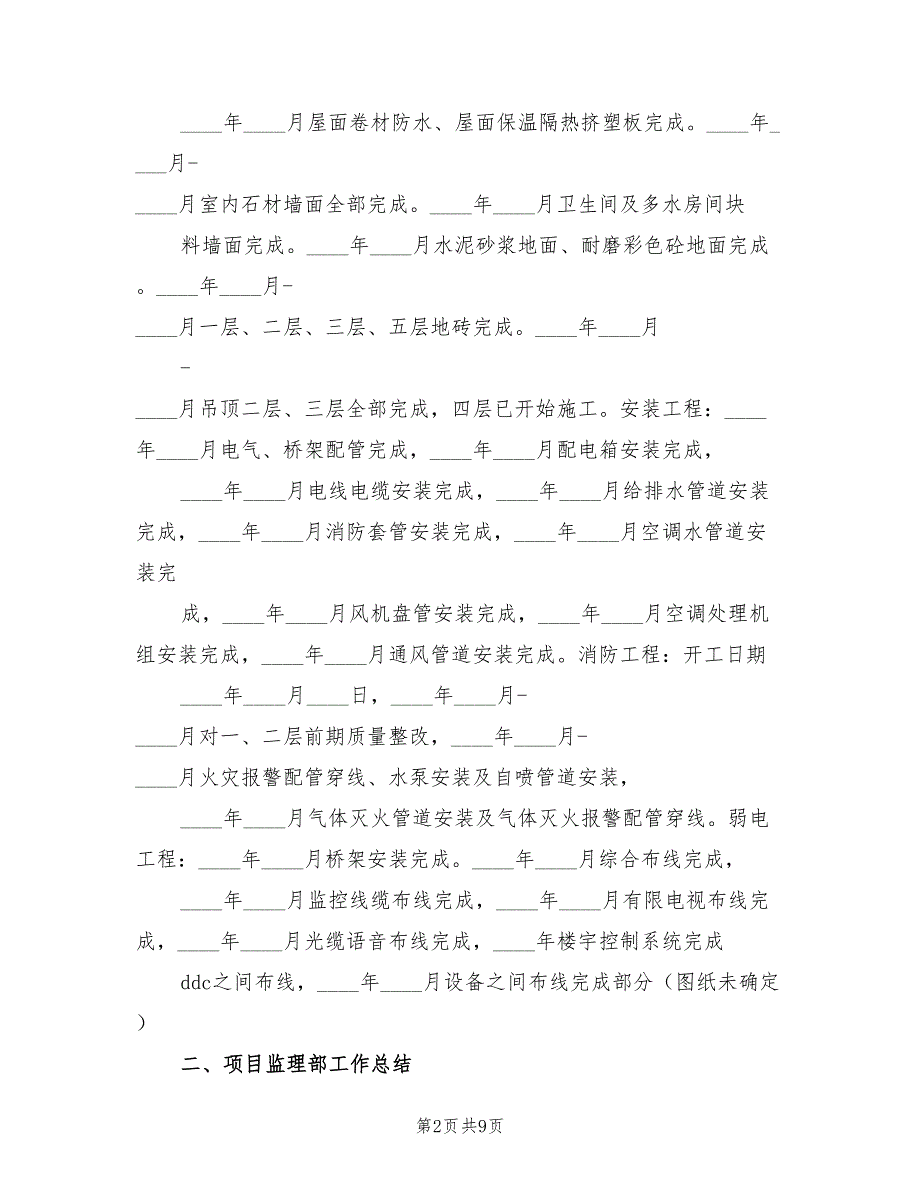 ____年____月屋面卷材防水、屋面保温隔热挤塑板完成。____年_
___月-
____月室内石材墙面全部完成。____年____月卫生间及多水房间块
料墙面完成。____年____月水泥砂浆地面、耐磨彩色砼地面完成
。____年____月-
____月一层、二层、三层、五层地砖完成。____年____月
-
____月吊顶二层、三层全部完成，四层已开始施工。安装工程：____
年____月电气、桥架配管完成，____年____月配电箱安装完成，
____年____月电线电缆安装完成，____年____月给排水管道安装
完成，____年____月消防套管安装完成，____年____月空调水管道安
装完
成，____年____月风机盘管安装完成，____年____月空调处理机
组安装完成，____年____月通风管道安装完成。消防工程：开工日期
____年____月____日，____年____月-
____月对一、二层前期质量整改，____年____月-
____月火灾报警配管穿线、水泵安装及自喷管道安装，
____年____月气体灭火管道安装及气体灭火报警配管穿线。弱电
工程：____年____月桥架安装完成。____年____月综合布线完成，
____年____月监控线缆布线完成，____年____月有限电视布线完
成，____年____月光缆语音布线完成，____年楼宇控制系统完成
ddc之间布线，____年____月设备之间布线完成部分（图纸未确定
）
二、项目监理部工作总结
第2页共9页